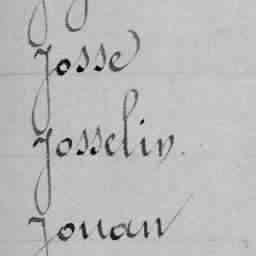 Josse
Josselin
Jouan